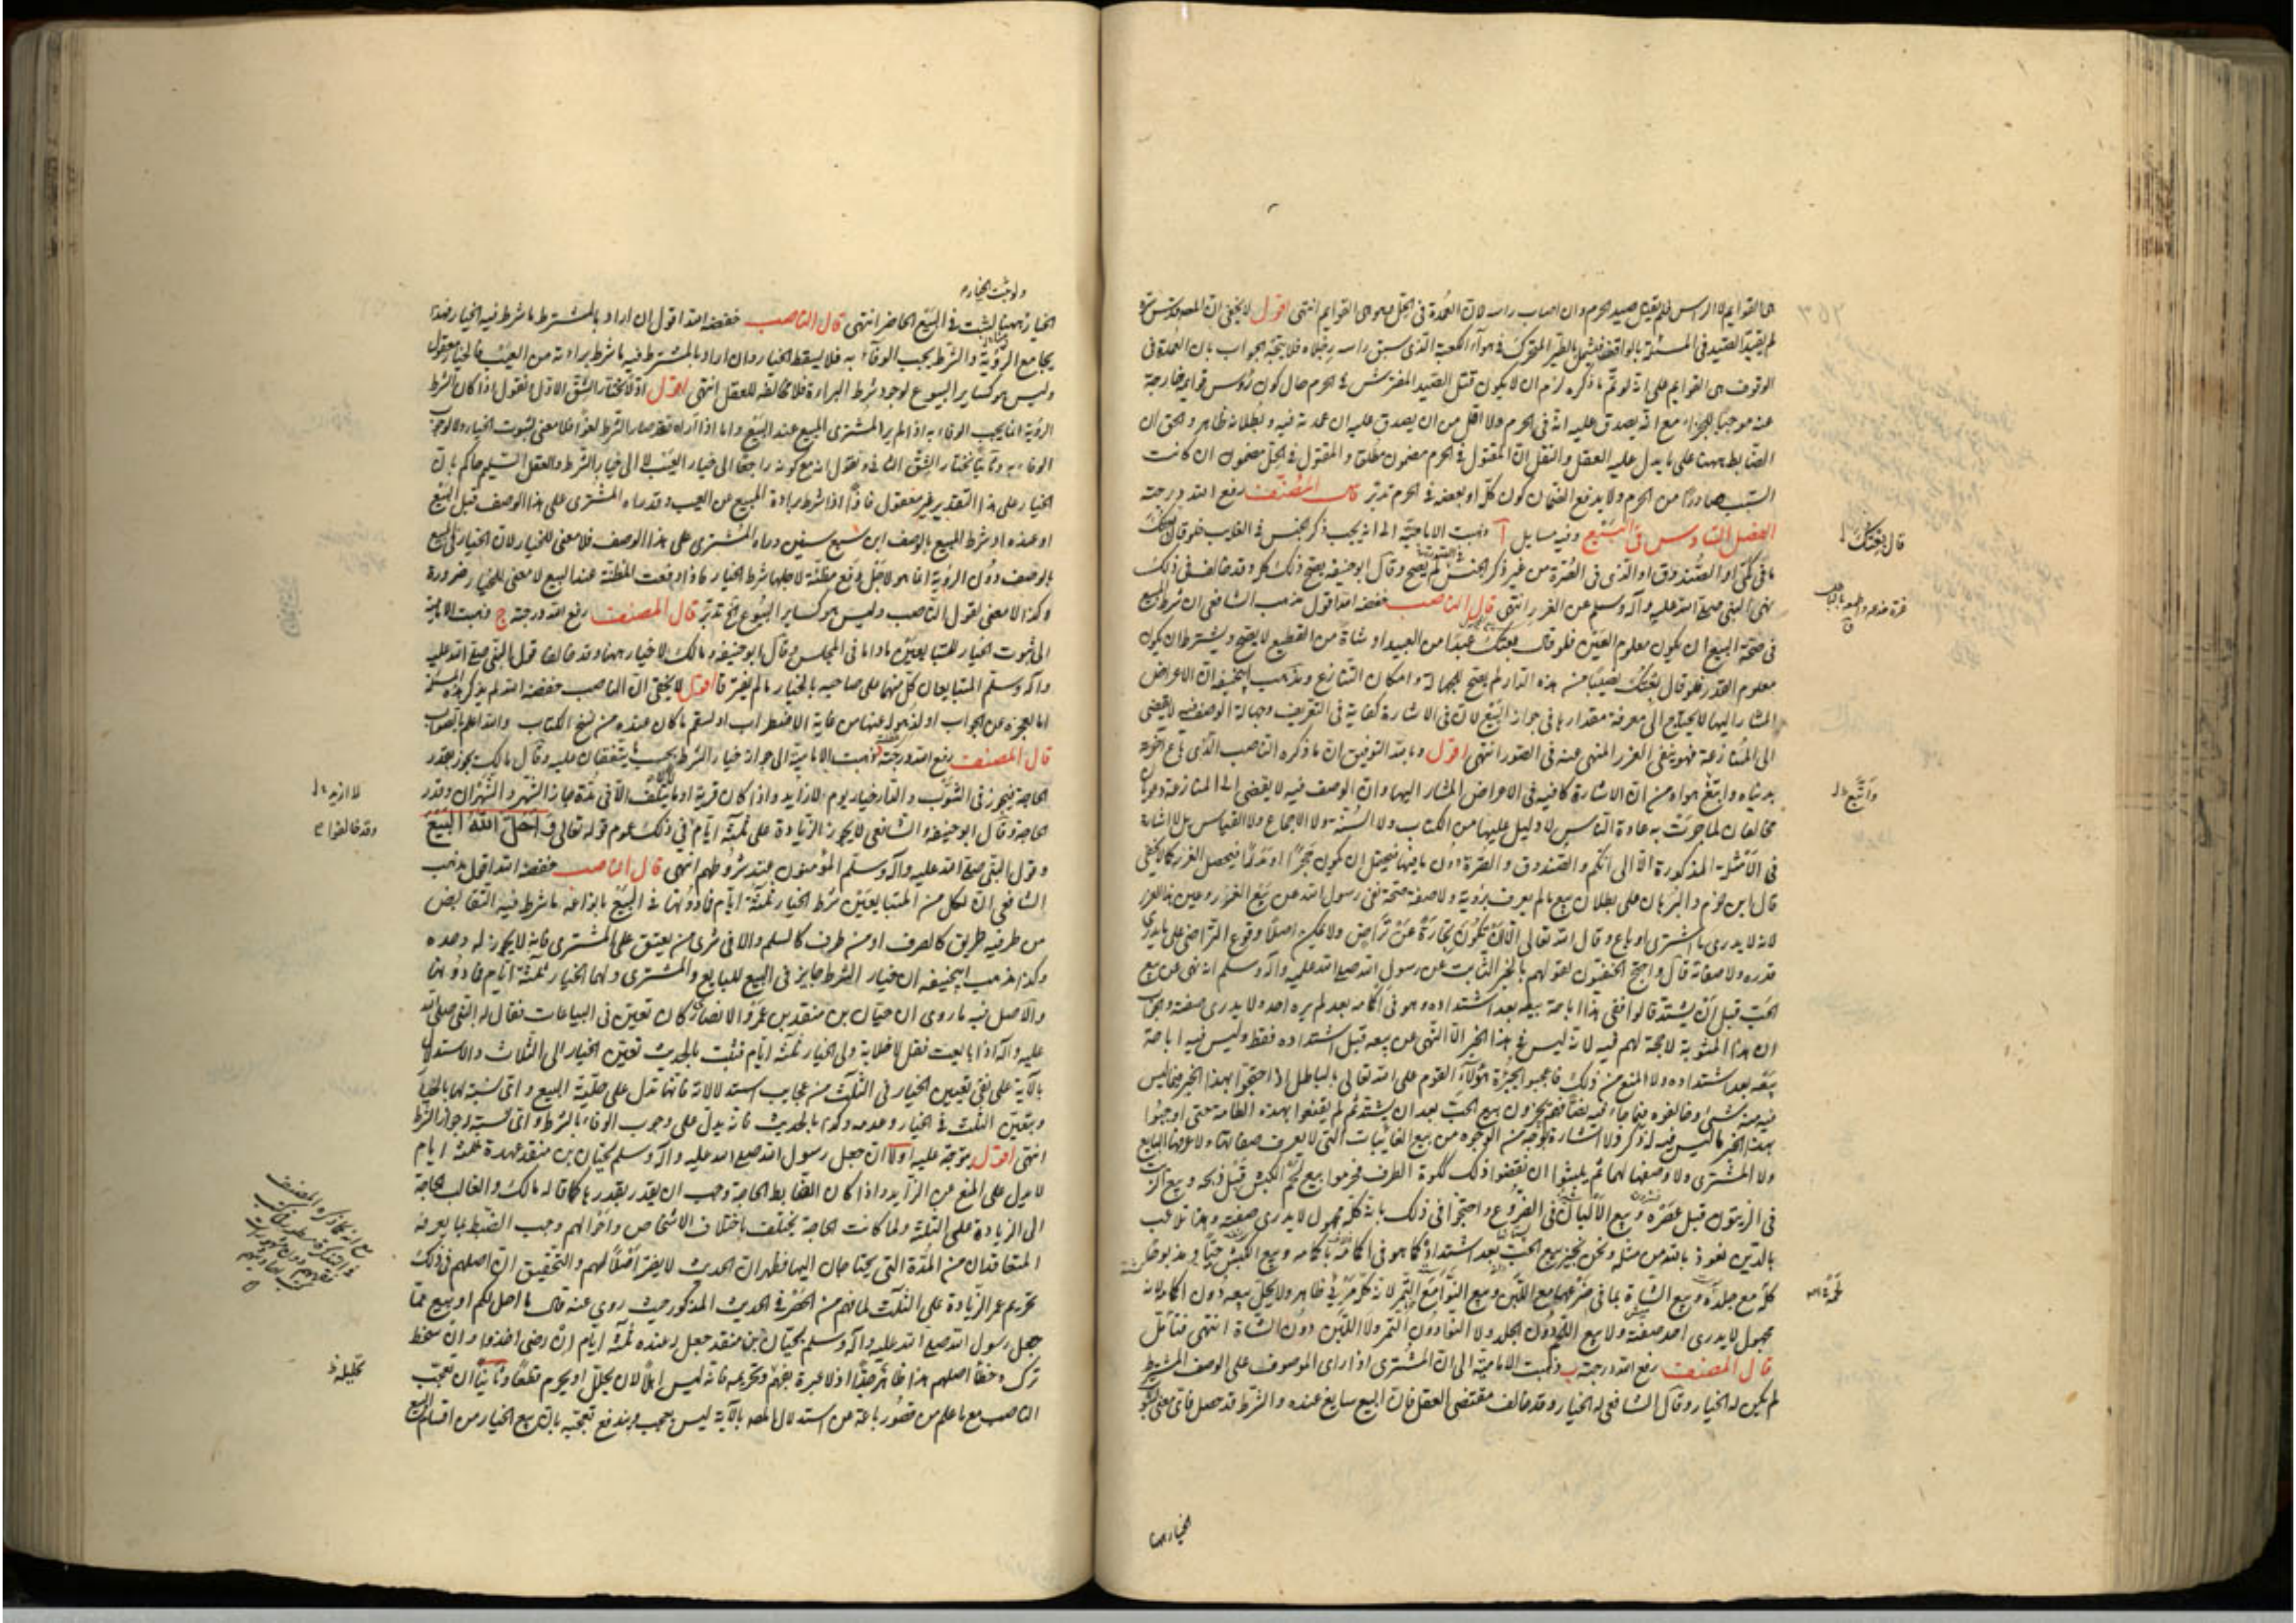 هى القوايم لا الراس فلم يقتل صيد الحرم وان اصاب راسه لان العمدة فى الحل هو هى القوايم انتهى اقول لا يخفى ان المصنف قدس سره
لم يقيد الصيد فى المسئلة بالواقف فيشمل الطير المتحرك فى هواء الكعبة الذى سبق راسه رجلاه فلا يتجه الجواب بان العمدة فى
الوقوف هى القوايم على انه لو تم ما ذكره لزم ان لا يكون قتل الصيد المفترش فى الحرم حال كون رؤس قوايمه خارجة
عنه موجبا للجزاء مع انه يصدق عليه انه فى الحرم ولا اقل من ان يصدق عليه ان عمدته فيه وبطلانه ظاهر والحق ان
الضابط ههنا على ما يدل عليه العقل والنقل ان المقتول فى الحرم مضمون مطلقا والمقتول فى الحل مضمون ان كانت
السبب صادرا من الحرم ولا يدفع الضمان كون كله او بعضه فى الحرم تدبر قال المصنف رفع الله درجته
الفصل السادس فى البيع وفيه مسايل آ ذهبت الامامية الى انه يجب ذكر الجنس فى الغايب فلو قال بعتك
ما فى كمى او الصندوق او الذى فى الصرة من غير ذكر الجنس لم يصح وقال ابو حنيفه يصح ذلك كله وقد خالف فى ذلك
نهى النبى صلى الله عليه وآله وسلم عن الغرر انتهى قال الناصب خفضه الله اقول مذهب الشافعى ان شرط المبيع
فى صحة البيع ان يكون معلوم العين فلو قال بعتك عبدا من العبيد او شاة من القطيع لا يصح ويشترط ان يكون
معلوم القدر فلو قال بعتك نصيبا من هذه الدار لم يصح للجهالة وامكان التنازع ومذهب ابيحنيفه ان الاعواض
المشار اليها لا يحتاج الى معرفة مقدارها فى جواز البيع لان فى الاشارة كفاية فى التعريف وجهالة الوصف فيه لا يفضى
الى المنازعة فهو ينفى الغرر المنهى عنه فى الصور انتهى اقول وبالله التوفيق ان ما ذكره الناصب الذى باع آخرته
بدنياه واتبع هواه من ان الاشارة كافية فى الاعواض المشار اليها وان الوصف فيه لا يفضى الى المنازعة دعويان
مخالفان لما جرت به عادة الناس لا دليل عليها من الكتاب ولا السنة ولا الاجماع ولا القياس بل لا اشارة
فى الامثلة المذكورة الا الى الكم والصندوق والصرة دون ما فيها فيحتمل ان يكون حجرا او مدرا فيحصل الغرر كما لا يخفى
قال ابن حزم والبرهان على بطلان بيع ما لم يعرف برؤية ولا صفة صحة نهى رسول الله عن بيع الغرر وعين هذا الغرر
لانه لا يدرى ما اشترى او باع وقال الله تعالى الا ان تكون تجارة عن تراض ولا يمكن اصلا وقوع التراضى على ما لا يدرى
قدره ولا صفاته قال واحتج الحنفيون لقولهم بالخبر الثابت عن رسول الله صلى الله عليه وآله وسلم انه نهى عن بيع
الحب قبل ان يشتد قالوا ففى هذا اباحة بيعه بعد اشتداده وهو فى اكمامه بعد لم يره احد ولا يدرى صفته والجواب
ان هذا المثوبة لا حجة لهم فيه لانه ليس فى هذا الخبر الا النهى عن بيعه قبل اشتداده فقط وليس فيه اباحة
بيعه بعد اشتداده ولا المنع من ذلك فاعجبوا لجرأة هؤلاء القوم على الله تعالى بالباطل اذا احتجوا بهذا الخبر فيما ليس
فيه منه شىء وخالفوه فيما جاء فيه نصا فهم يجيزون بيع الحب بعد ان يشتد ثم لم يقنعوا بهذه الطامة حتى اوجبوا
بهذا الخبر ما ليس فيه له ذكر ولا اشارة بوجه من الوجوه من بيع الغايبات التى لا يعرف صفاتها ولا عرفها البايع
ولا المشترى ولا وصفها لهما ثم لم يلبثوا ان نقضوا ذلك ككرة الطرف فحرموا بيع لحم الكبش قبل ذبحه وبيع الزيت
فى الزيتون قبل عصره وبيع الالبان فى الضروع واحتجوا فى ذلك بانه كله مجهول لا يدرى صفته وهذا تلاعب
بالدين نعوذ بالله من مثله ونحن نجيز بيع الحب بعد اشتداده كما هو فى اكمامه باكمامه وبيع الكبش حيا ومذبوحا
كله مع جلده وبيع الشاة بما فى ضرعها مع اللبن وبيع النوى مع التمر لانه كله مرئى ظاهر ولا يحل بيعه دون اكمامه لانه
مجهول لا يدرى احد صفته ولا بيع اللحم دون الجلد ولا النوى دون التمر ولا اللبن دون الشاة انتهى فتأمل
قال المصنف رفع الله درجته ب ذهبت الامامية الى ان المشترى اذا راى الموصوف على الوصف المشترط
لم يكن له الخيار وقال الشافعى له الخيار وقد خالف مقتضى العقل فان البيع سايغ عنده والشرط قد حصل فاى معنى لثبوت
الخيار ههنا
قال بعتك
واتبع
٢٦٣
ولو ثبت الخيار
الخيار ههنا لثبت فى المبيع الحاضر انتهى قال الناصب خفضه الله اقول ان اراد بالمشترط ما شرط فيه الخيار فهذا
يجامع الرؤية والشرط يجب الوفاء به فلا يسقط الخيار وان اراد بالمشترط فيه ما شرط براءته من العيب فالخيار معقول
وليس هو كساير البيوع لوجود شرط البراءة فلا مخالفة للعقل انتهى اقول اولا نختار الشق الاول ونقول اذا كان الشرط
الرؤية انما يجب الوفاء به اذا لم ير المشترى المبيع عند البيع واما اذا رآه فقد صار الشرط لغوا فلا معنى لثبوت الخيار ولا لوجوب
الوفاء به وثانيا نختار الشق الثانى ونقول انه مع كونه راجعا الى خيار العيب لا الى خيار الشرط والعقل السليم حاكم بان
الخيار على هذا التقدير غير معقول فاذا اذا شرط براءة المبيع من العيب وقد رآه المشترى على هذا الوصف قبل البيع
او عنده او شرط المبيع بالوصف ابن سبع سنين ورآه المشترى على هذا الوصف فلا معنى للخيار لان الخيار فى المبيع
بالوصف دون الرؤية انما هو لاجل وقع مظنة لاجلها شرط الخيار فاذا وقعت المظنة عند البيع لا معنى للخيار ضرورة
وكذا لا معنى لقول الناصب وليس هو كساير البيوع الخ تدبر قال المصنف رفع الله درجته ج ذهبت الامامية
الى ثبوت الخيار للمتبايعين ما داما فى المجلس وقال ابو حنيفه ومالك لا خيار ههنا وقد خالفا قول النبى صلى الله عليه
وآله وسلم المتبايعان كل منهما على صاحبه بالخيار ما لم يفترقا اقول لا يخفى ان الناصب خفضه الله لم يذكر هذه المسئلة
اما لعجزه عن الجواب او لذهوله عنها من غاية الاضطراب او لسقم ما كان عنده من نسخ الكتاب والله اعلم بالصواب
قال المصنف رفع الله درجته ذهبت الامامية الى جواز خيار الشرط بحسب ما يتفقان عليه وقال مالك يجوز بقدر
الحاجة فيجوز فى الثوب والدار خيار يوم لا ازيد واذا كان قرية او ما يتلف الا فى مدة جاز الشهر والشهران وقدر
الحاجة وقال ابو حنيفه والشافعى لا يجوز الزيادة على ثلثة ايام فى ذلك عموم قوله تعالى واحل الله البيع
وقول النبى صلى الله عليه وآله وسلم المؤمنون عند شروطهم انتهى قال الناصب خفضه الله اقول مذهب
الشافعى ان لكل من المتبايعين شرط الخيار ثلثة ايام فما دونها فى البيع بانواعه ما شرط فيه التقابض
من طرفيه كالصرف او من طرف كالسلم والا فى شرى من يعتق على المشترى فانه لا يجوز له وحده
وكذا مذهب ابيحنيفه ان خيار الشرط جايز فى البيع للبايع والمشترى ولهما الخيار ثلثة ايام فما دونها
والاصل فيه ما روى ان حبان بن منقذ بن عمرو الانصارى كان يغبن فى البياعات فقال له النبى صلى الله
عليه وآله اذا بايعت فقل لا خلابة ولى الخيار ثلثة ايام فثبت بالحديث تعيين الخيار الى الثلاث والاستدلال
بالآية على نفى تعيين الخيار فى الثلث من عجايب استدلالاته فانها تدل على حلية البيع واى نسبة لها بالخيار
وبتعيين الثلث فى الخيار وعدمه وكذا بالحديث فانه يدل على وجوب الوفاء بالشرط واى نسبته لجواز الشرط
انتهى اقول يتوجه عليه اولا ان جعل رسول الله صلى الله عليه وآله وسلم لحبان بن منقذ عهدة ثلثة ايام
لا يدل على المنع عن الزايد واذا كان الضابط الحاجة وجب ان يقدر بقدرها كما قاله مالك والغالب الحاجة
الى الزيادة على الثلثة ولما كانت الحاجة يختلف باختلاف الاشخاص واحوالهم وجب الضبط بما يعرفه
المتعاقدان من المدة التى يحتاجان اليها فظهر ان الحديث لا يصير اصلا لهم والتحقيق ان اصلهم فى ذلك
تحريم عمر الزيادة على الثلث لما فهم من الحصر فى الحديث المذكور حيث روى عنه قال ما احل لكم اوسع مما
جعل رسول الله صلى الله عليه وآله وسلم لحبان بن منقذ جعل له عنده ثلثة ايام ان رضى اخذ وان سخط
ترك وخطأ اصلهم هذا ظاهر جدا اذ لا عبرة بفهمه وتحريمه فانه ليس اهلا لان يحلل او يحرم قطعا وثانيا ان تعجب
الناصب مع ما علم من قصور باعه عن استدلال المص بالآية ليس بعجب ويندفع تعجبه بان بيع الخيار من اقسام البيع
لا ازيد
وقد خالفوا
تحليله